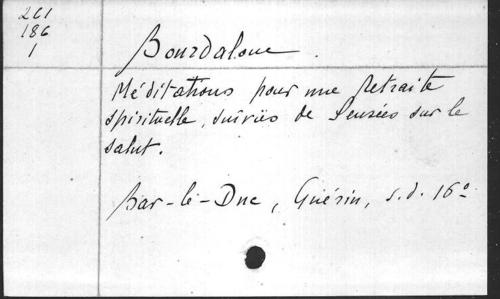 261
186
1
Bourdaloue.
Méditations pour une Retraite
spirituelle, suivies de Pensées sur le
salut.
Bar-le-Duc, Guérin, s.d. 16º